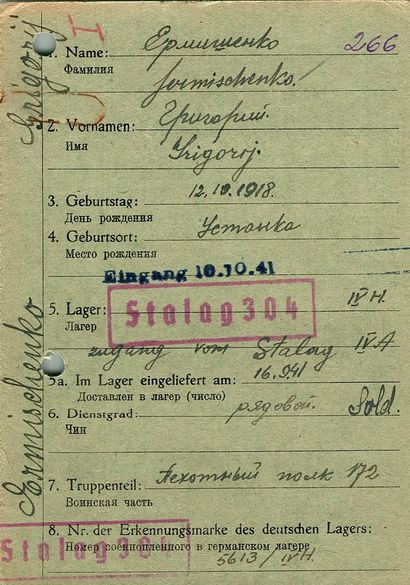 Ермишенко
1. Name:
266
Фамилия
Jermischenko.
Григорий.
2. Vornamen:
Имя
Grigorij.
12.10.1918.
3. Geburtstag:
День рождения
Устанка
4. Geburtsort:
Место рождения
Eingang 10.10.41
5. Lager:
IV H.
Лагер
Stalag 304
zugang vom Stalag IV A
5a. Im Lager eingeliefert am: 16.9.41
Доставлен в лагер (число)
6. Dienstgrad: рядовой. Sold.
Чин
7. Truppenteil: Пехотный полк 172
Воинская часть
8. Nr. der Erkennungsmarke des deutschen Lagers:
Номер военнопленного в германском лагере
5613/IV H.
Stalag 304
I
Ermischenko Grigorij